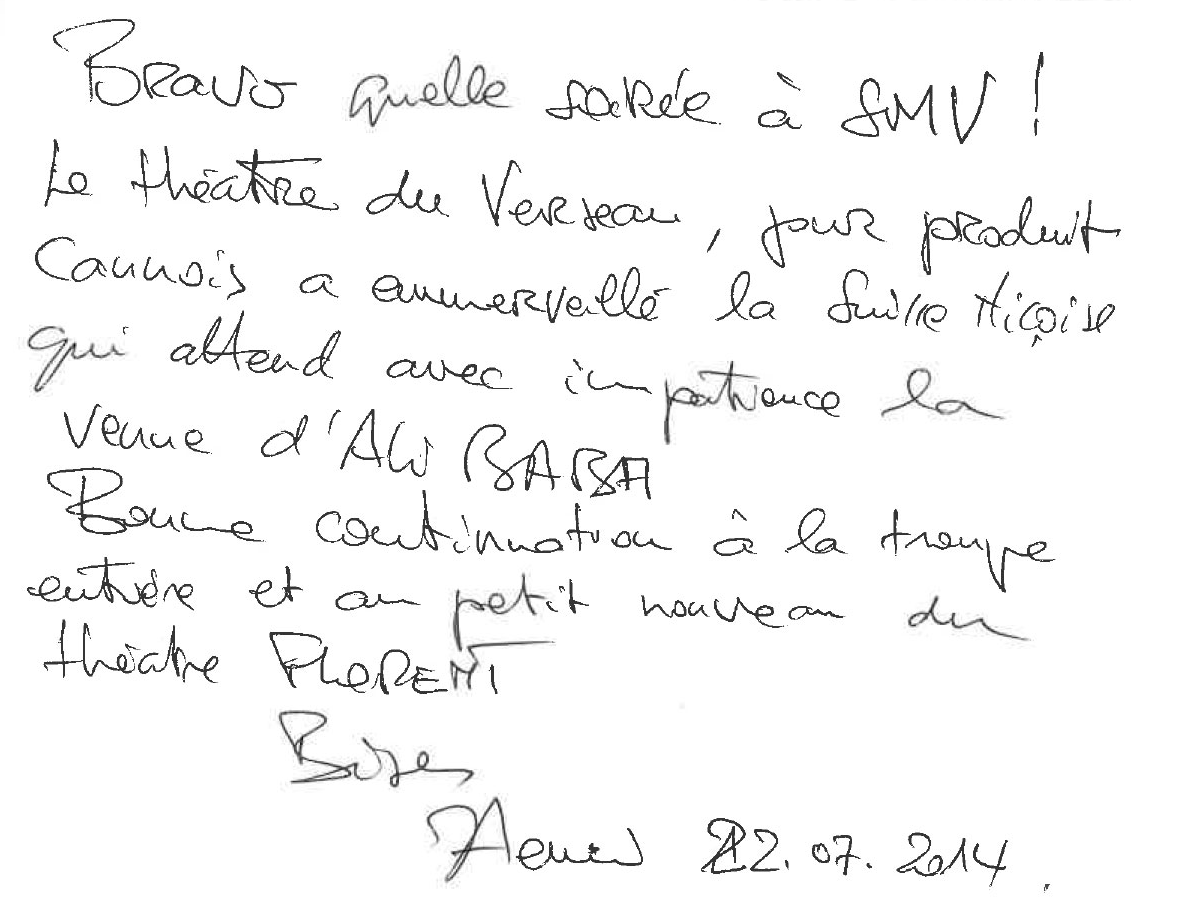 Bravo quelle soirée à SMV !
Le théâtre du Verseau, pour produit
Cannois a emmerveillé la Suisse Niçoise
qui attend avec impatience la
venue d'Ali BABA
Bonne continuation à la troupe
entière et au petit nouveau du
théâtre FLORENT
Bises
22.07.2014.